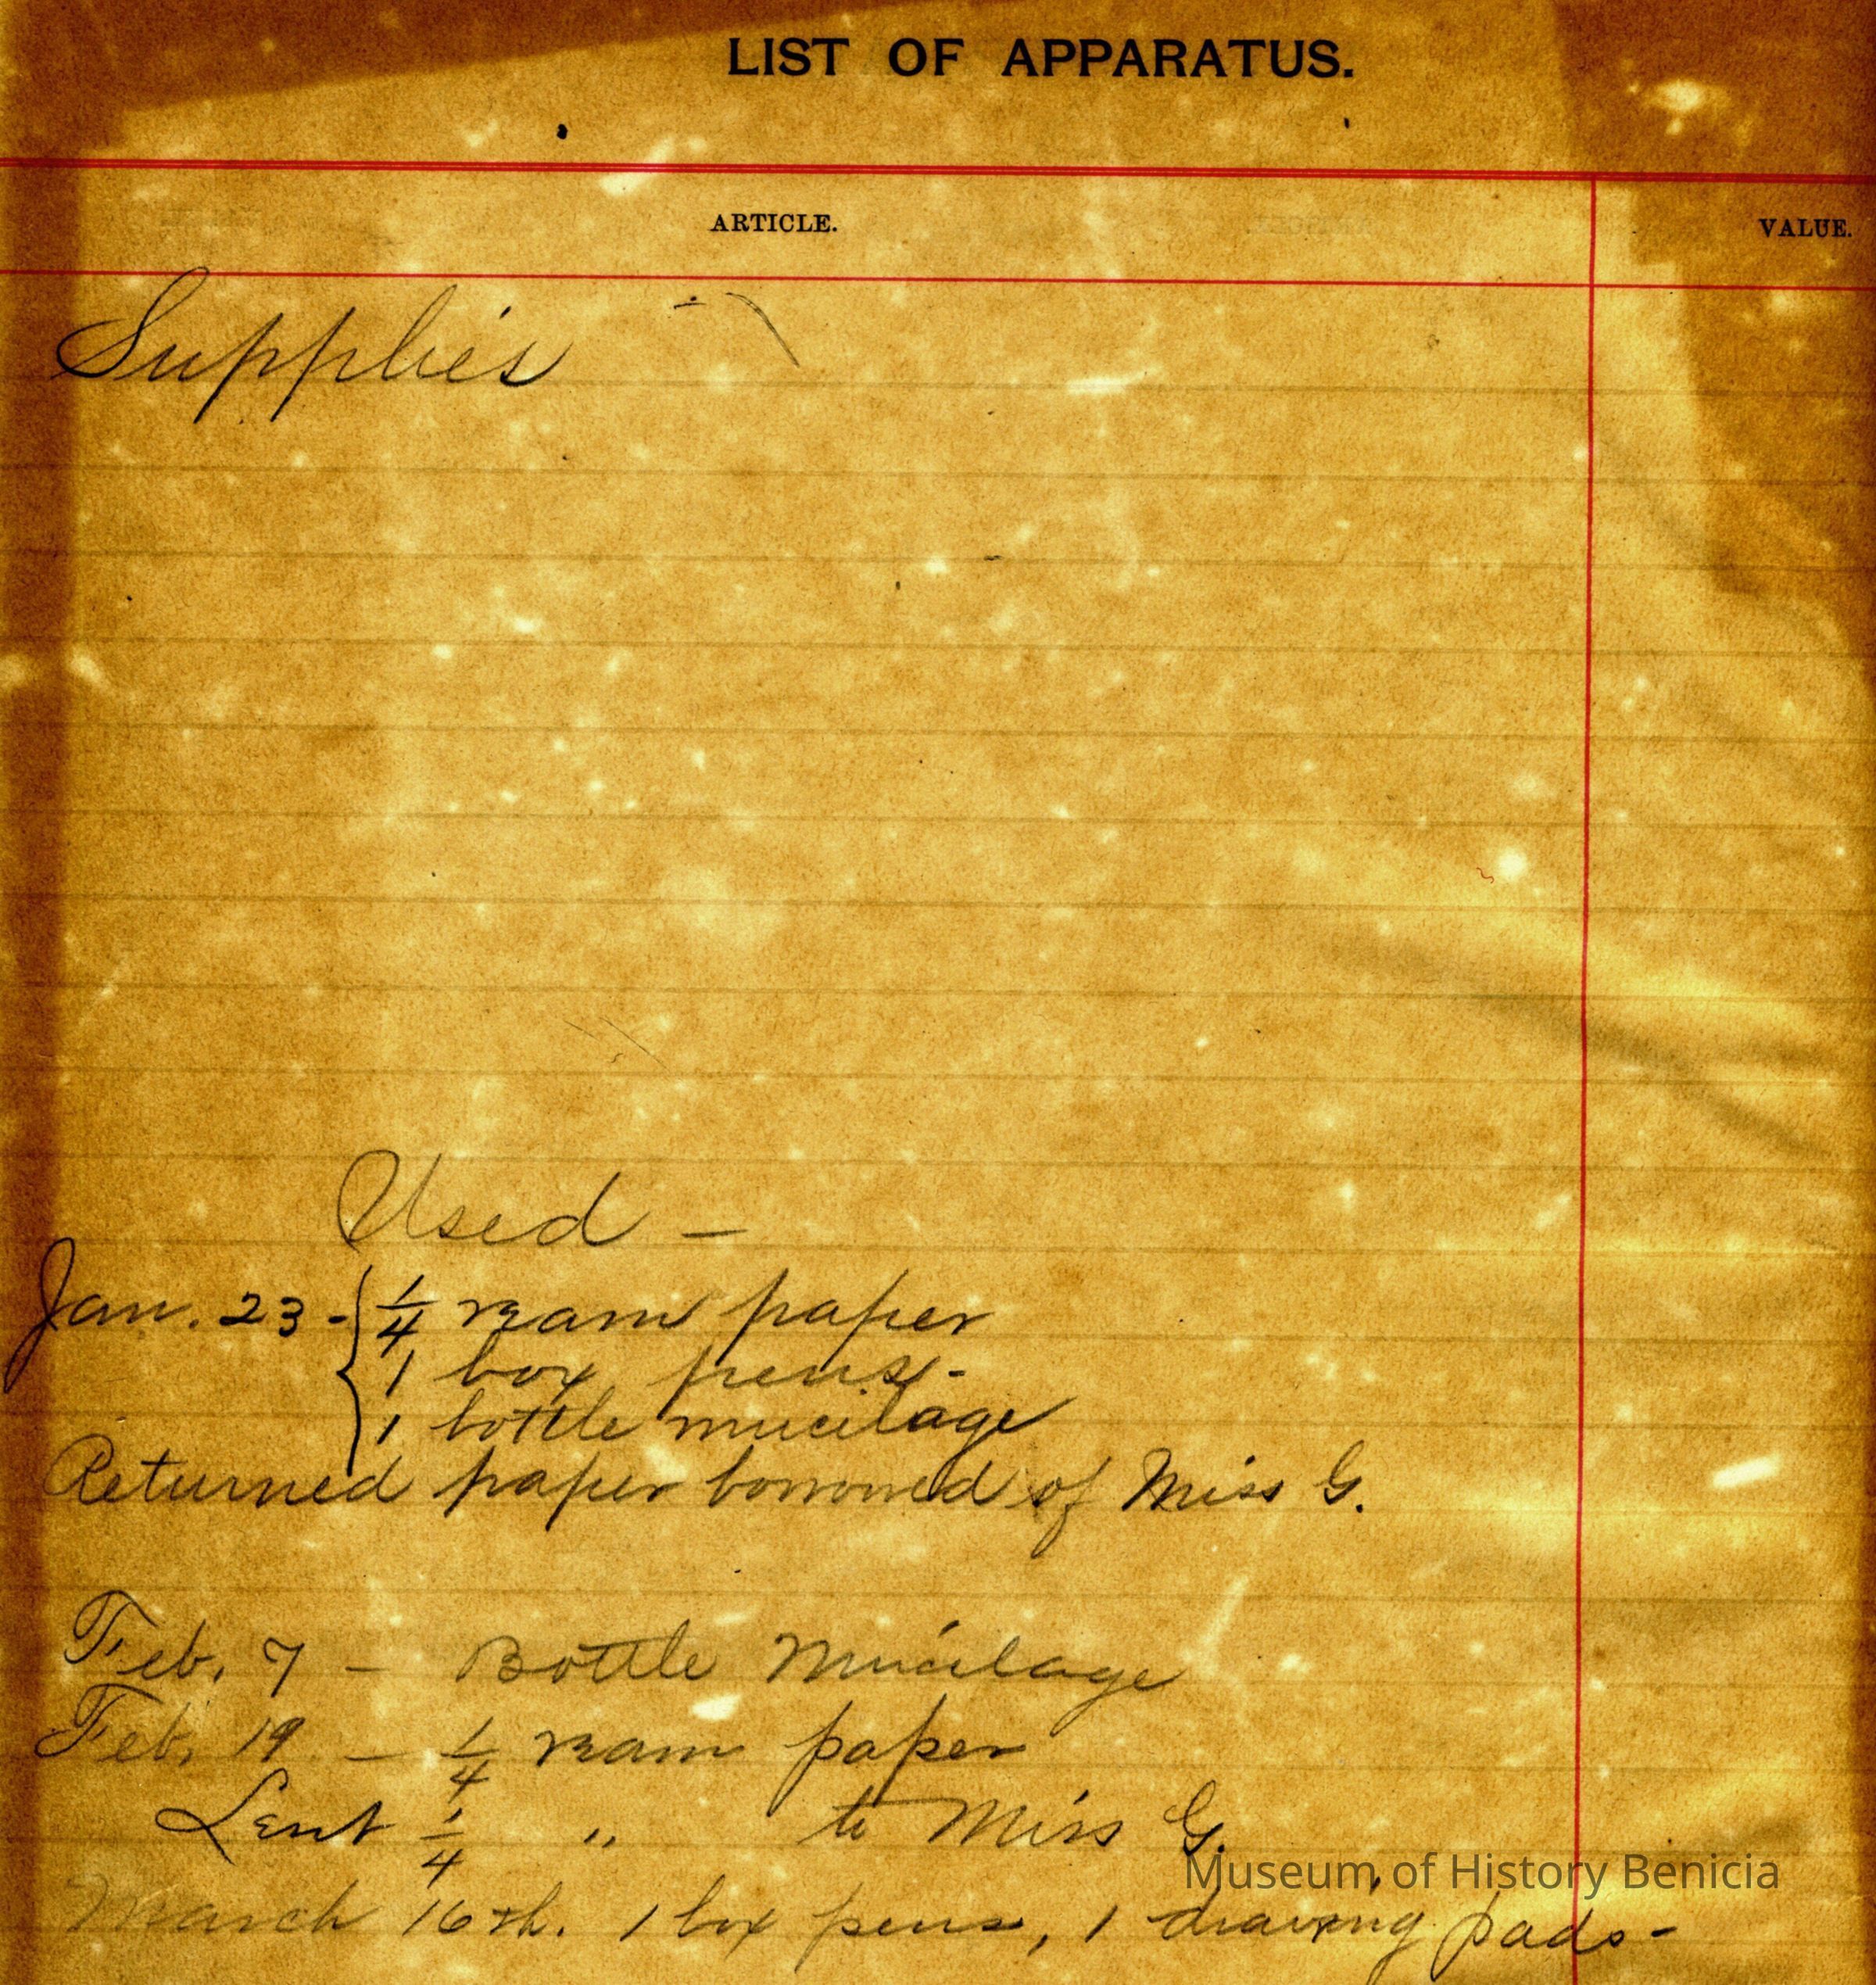 LIST OF APPARATUS.
ARTICLE. VALUE.
Supplies
Used -
Jan. 23 - 1/4 ream paper
1 box pens.-
1 bottle mucilage
Returned paper borrowed of Miss G.
Feb. 7 - Bottle Mucilage
Feb. 19 - 1/4 ream paper
Lent 1/4 " to Miss G.
Museum of History Benicia
March 16th. 1 box pens, 1 drawing pads-